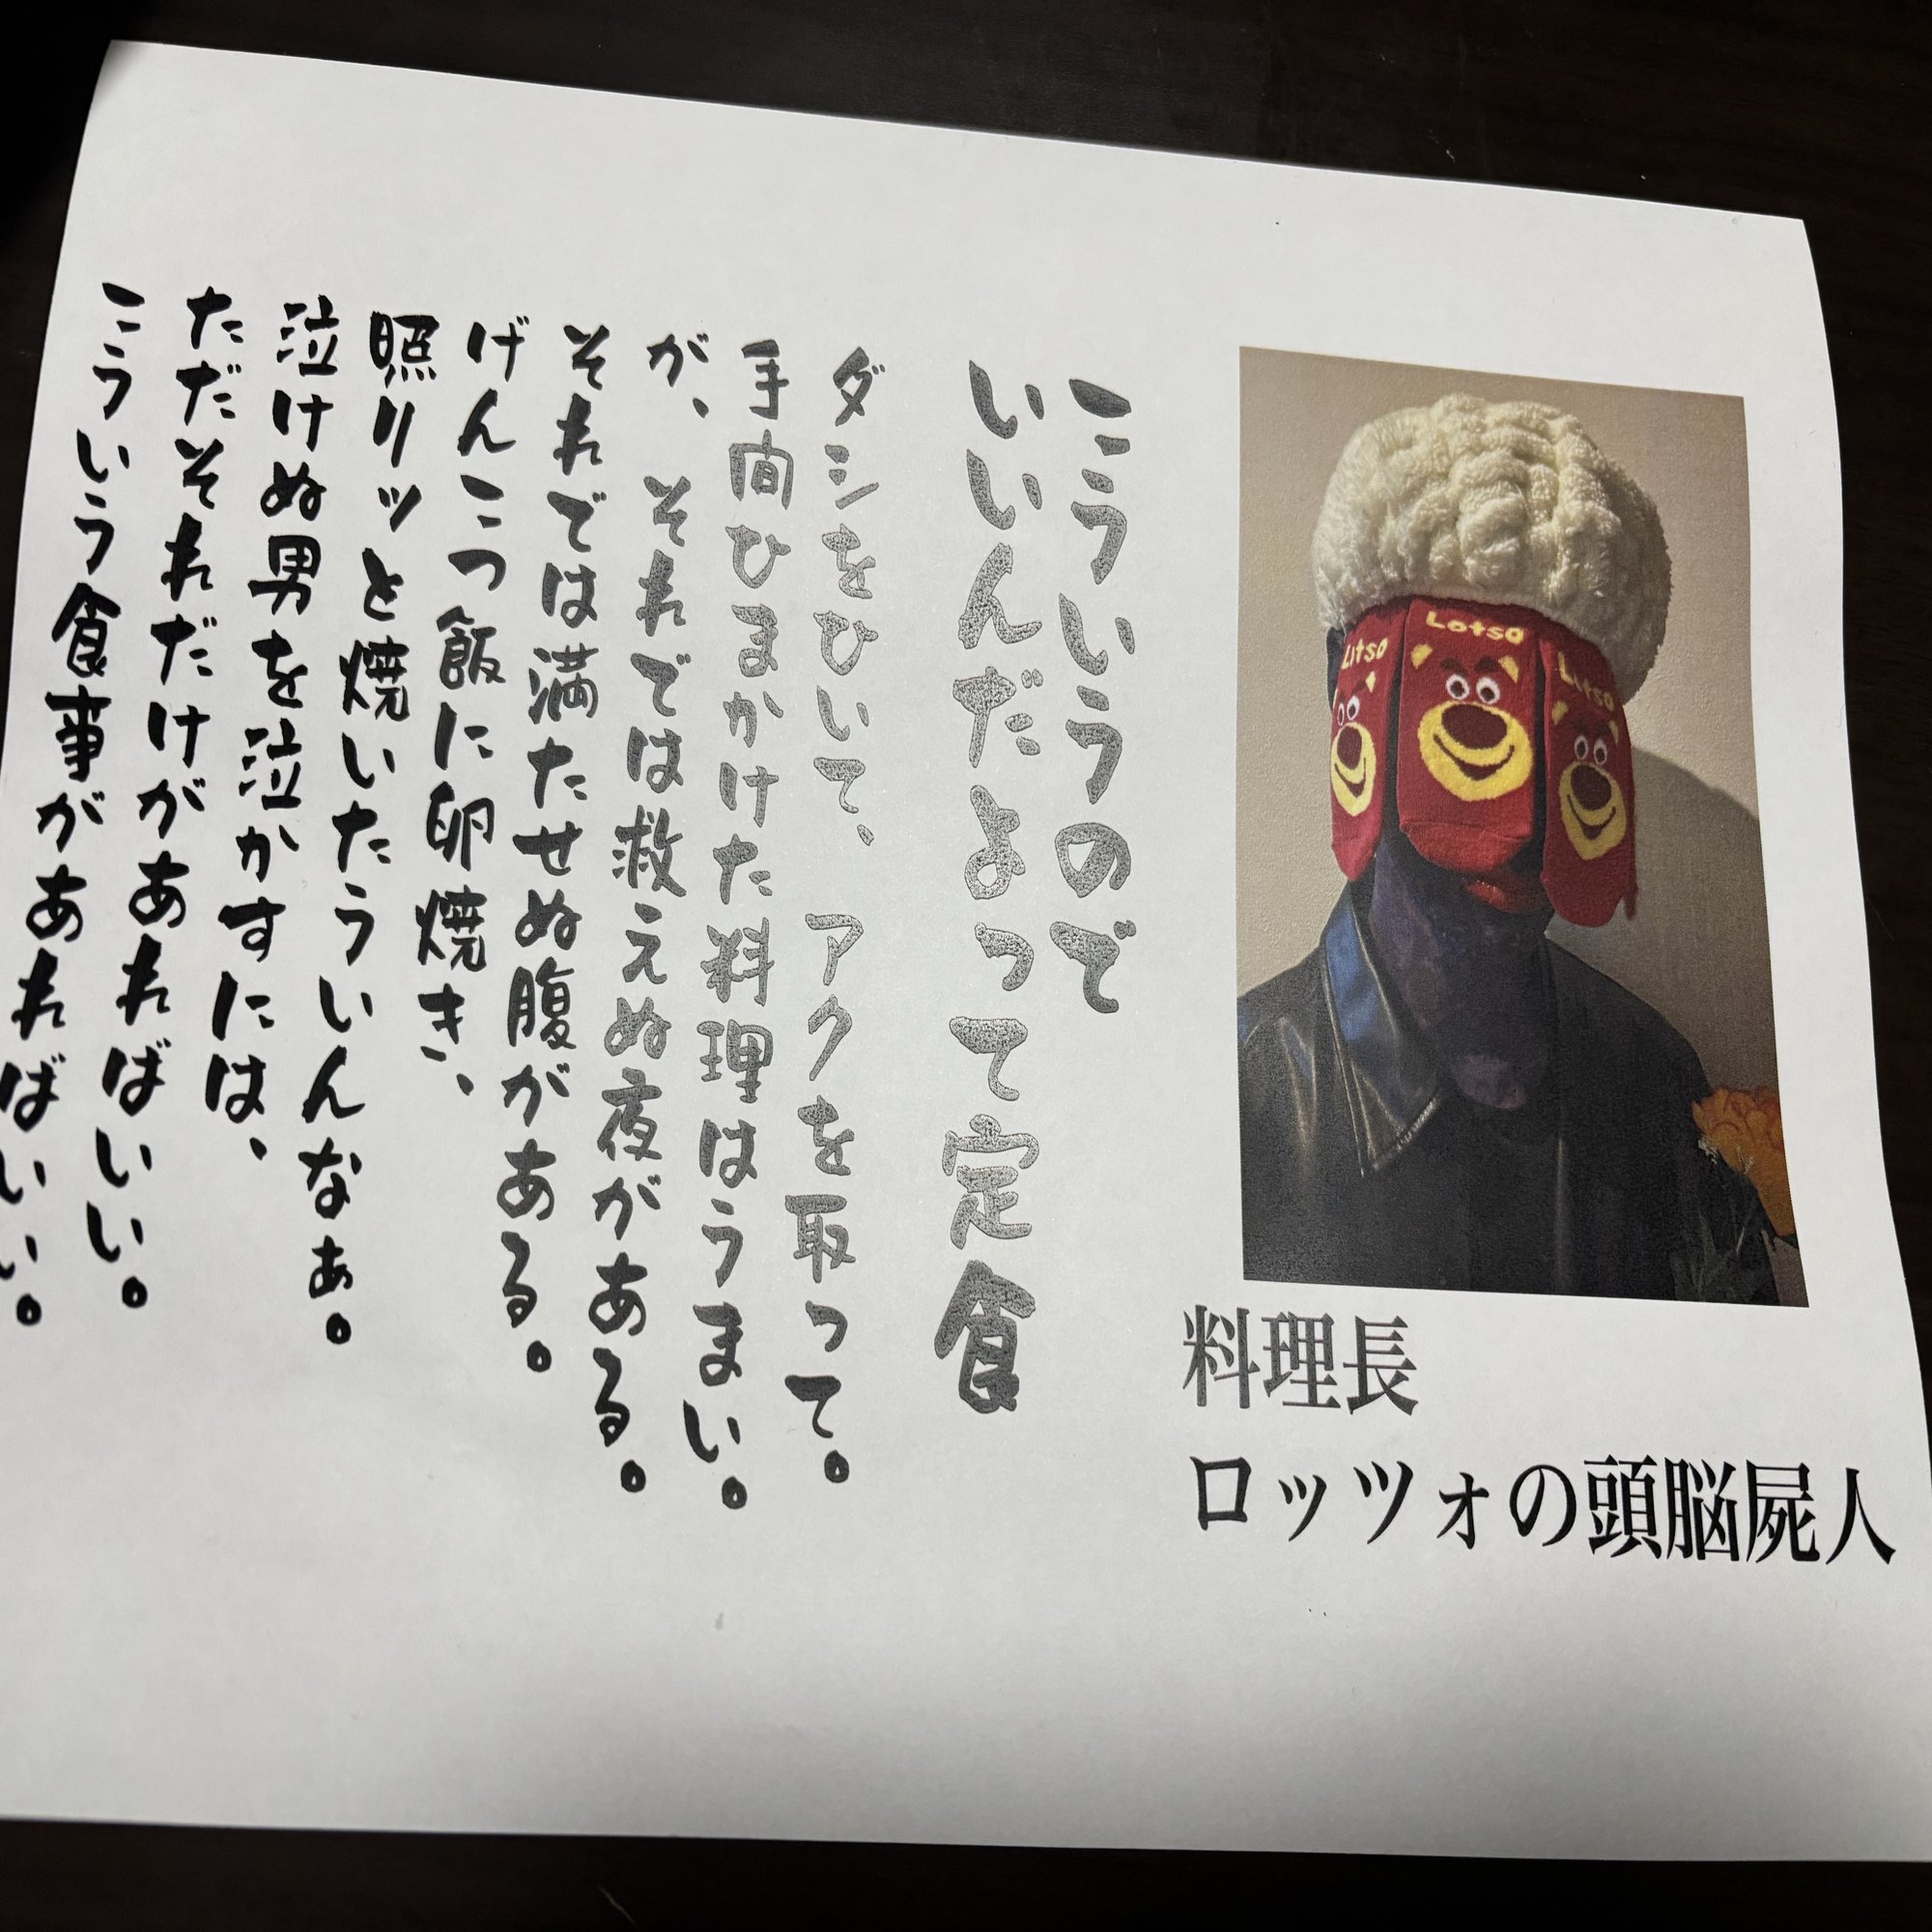 こういうので
いいんだよって定食
ダシをひいて、アクを取って。
手間ひまかけた料理はうまい。
が、それでは救えぬ夜がある。
それでは満たせぬ腹がある。
げんこつ飯に卵焼き、
照りッと焼いたういんなぁ。
泣けぬ男を泣かすには、
ただそれだけがあればいい。
こういう食事があればいい。
Lotso
Lotso
Lotso
料理長
ロッツォの頭脳屍人